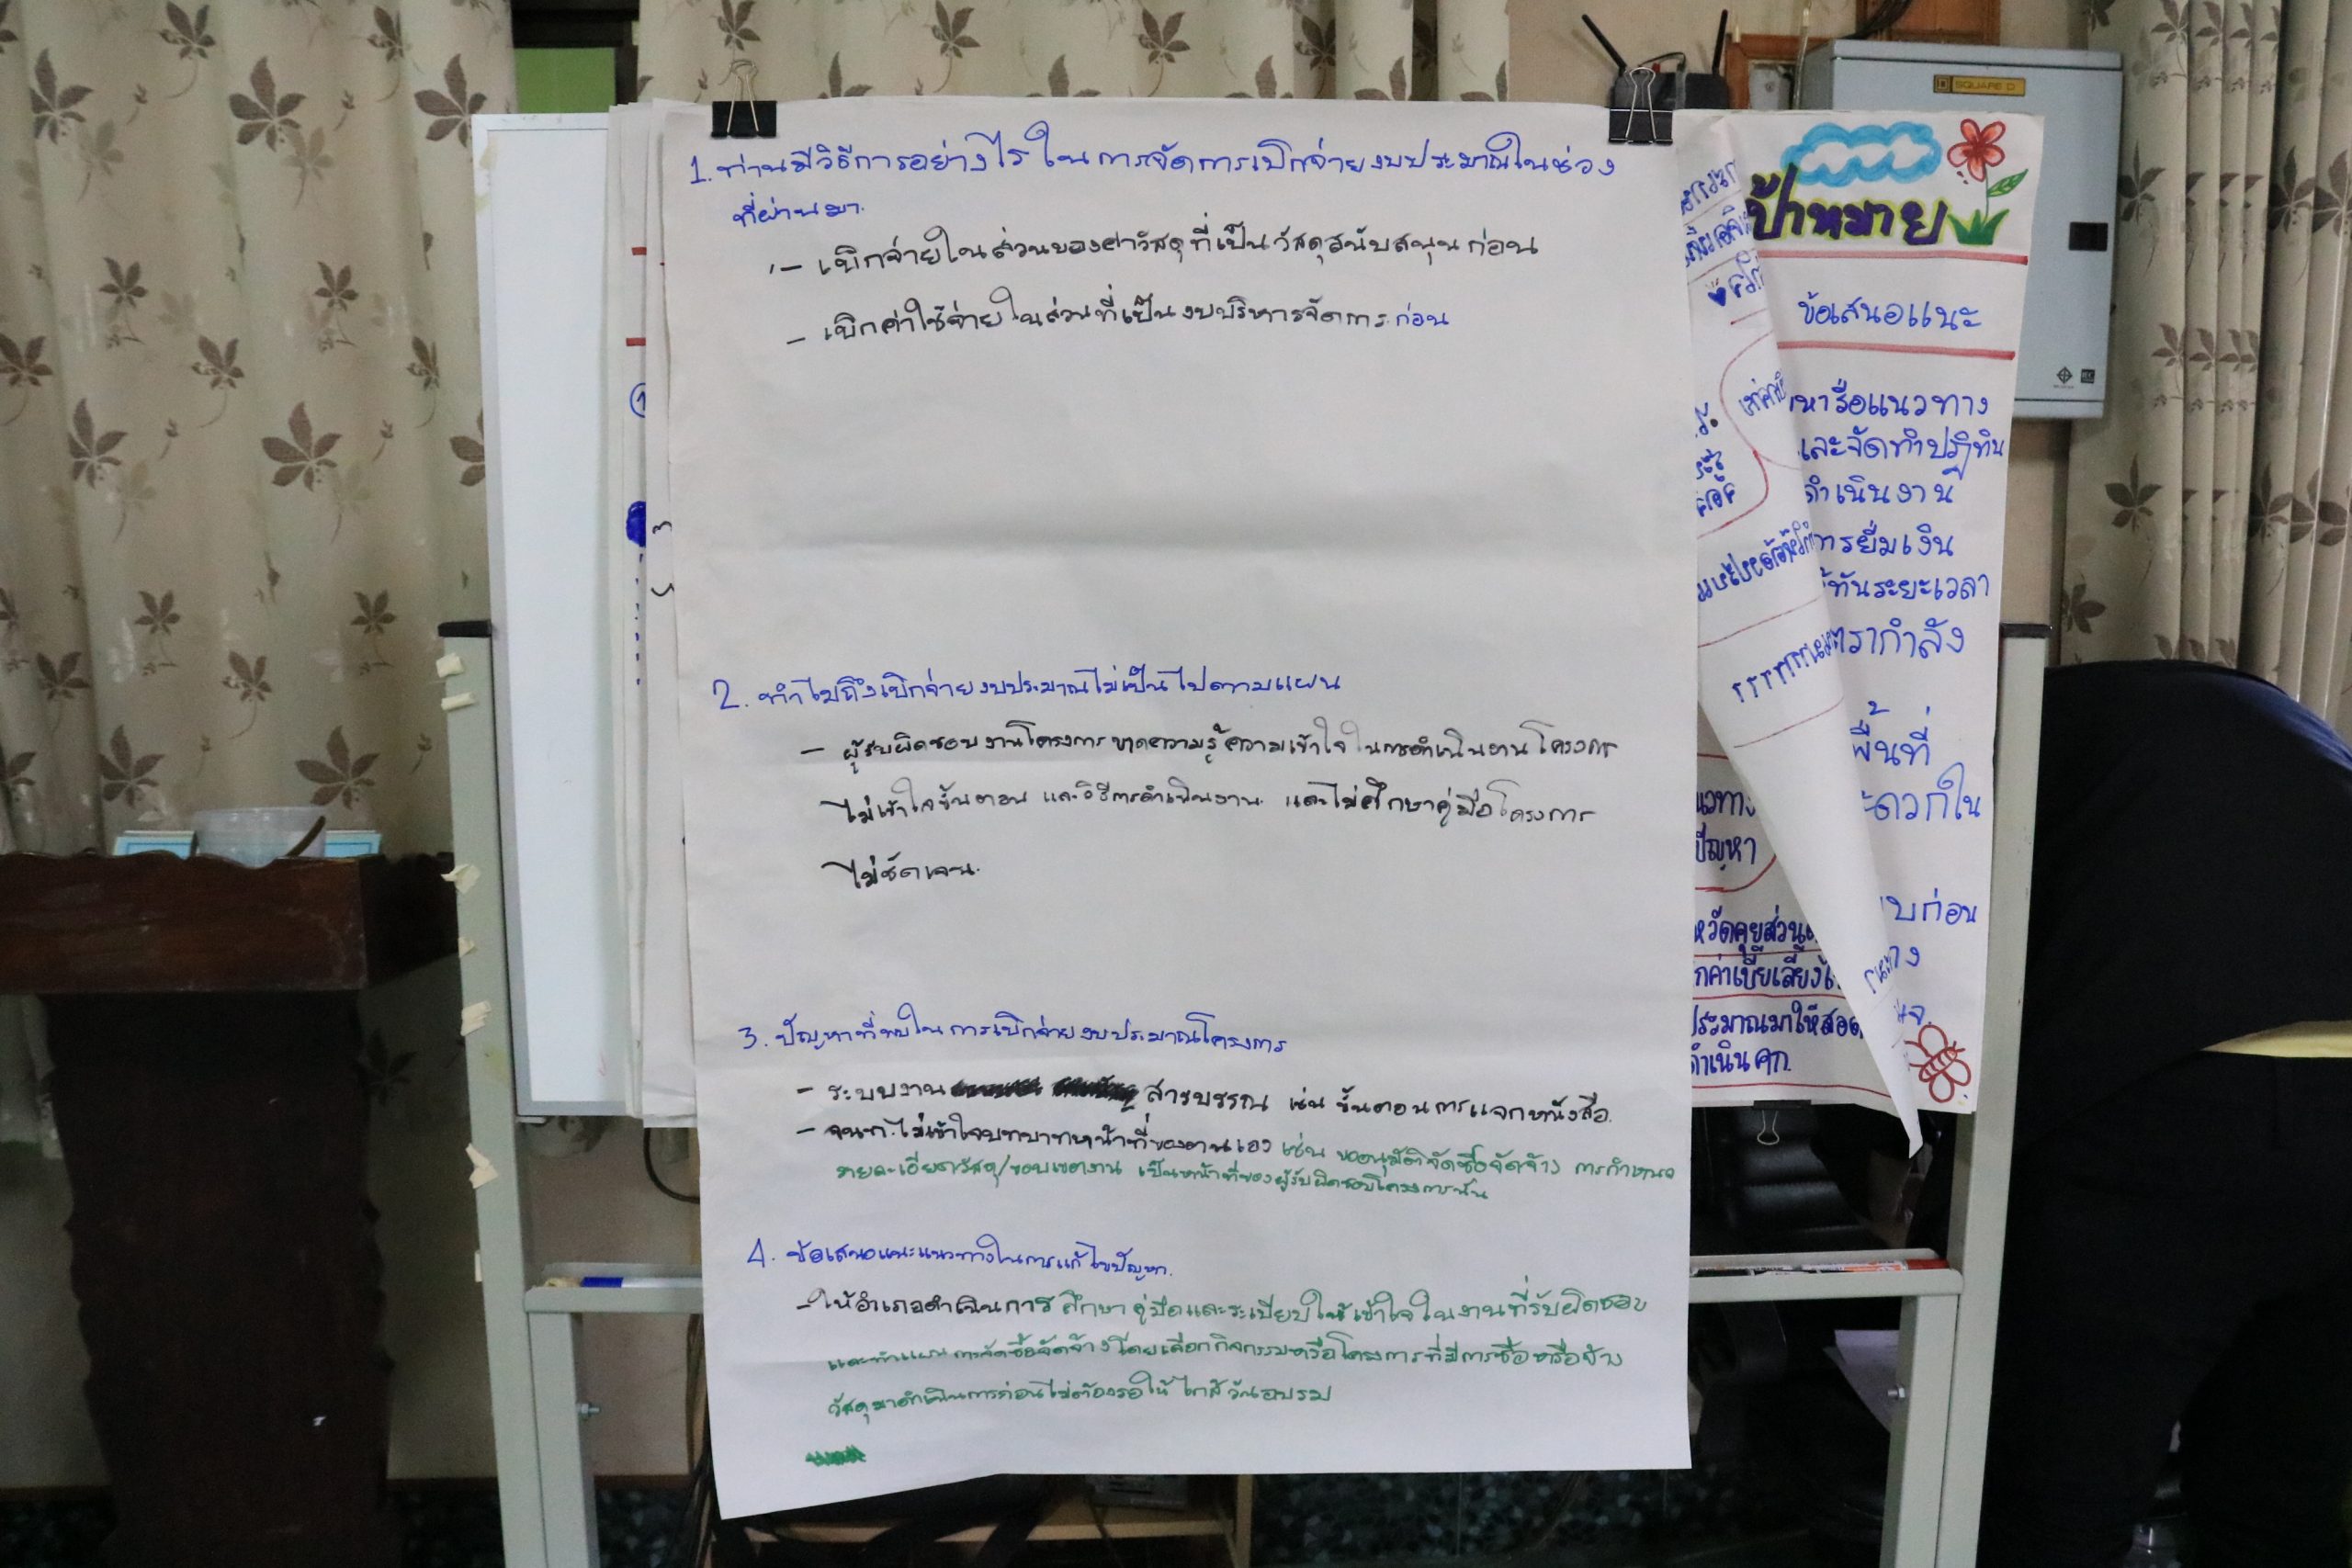 1. ท่านมีวิธีการอย่างไรในการจัดการเบิกจ่ายงบประมาณในช่วง
ที่ผ่านมา
- เบิกจ่ายในส่วนของค่าวัสดุที่เป็นวัสดุสนับสนุนก่อน
- เบิกค่าใช้จ่ายในส่วนที่เป็นงบบริหารจัดการก่อน
2. ทำไมถึงเบิกจ่ายงบประมาณไม่เป็นไปตามแผน
- ผู้รับผิดชอบงานโครงการขาดความรู้ความเข้าใจในการดำเนินงานโครงการ
ไม่เข้าใจขั้นตอน และวิธีการดำเนินงาน และไม่ศึกษาคู่มือโครงการ
ไม่ชัดเจน.
3. ปัญหาที่พบในการเบิกจ่ายงบประมาณโครงการ
- ระบบงาน สารบรรณ เช่น ขั้นตอนการแจกหนังสือ
- จนท. ไม่เข้าใจบทบาทหน้าที่ของตนเอง เช่น ขออนุมัติจัดซื้อจัดจ้าง การกำหนด
รายละเอียดวัสดุ/ขอบเขตงาน เป็นหน้าที่ของผู้รับผิดชอบโครงการนั้น
4. ข้อเสนอแนะแนวทางในการแก้ไขปัญหา.
- ให้อำเภอดำเนินการศึกษาคู่มือและระเบียบให้เข้าใจในงานที่รับผิดชอบ
และทำแผนการจัดซื้อจัดจ้างโดยเลือกกิจกรรมหรือโครงการที่มีการซื้อหรือจ้าง
วัสดุมาดำเนินการก่อนไม่ต้องรอให้ใกล้วันอบรม
ป้าหมาย
ข้อเสนอแนะ
หารือแนวทาง
และจัดทำปฏิทิน
ดำเนินงาน
การยืมเงิน
ทันระยะเวลา
ตรากำลัง
พื้นที่
ะดวกใน
บก่อน
นวทาง
ปัญหา
หวัดคุยส่วน
กค่าเบี้ยเลี้ยง
ประมาณมาให้สอด
ดำเนิน คก.
SQUARE D